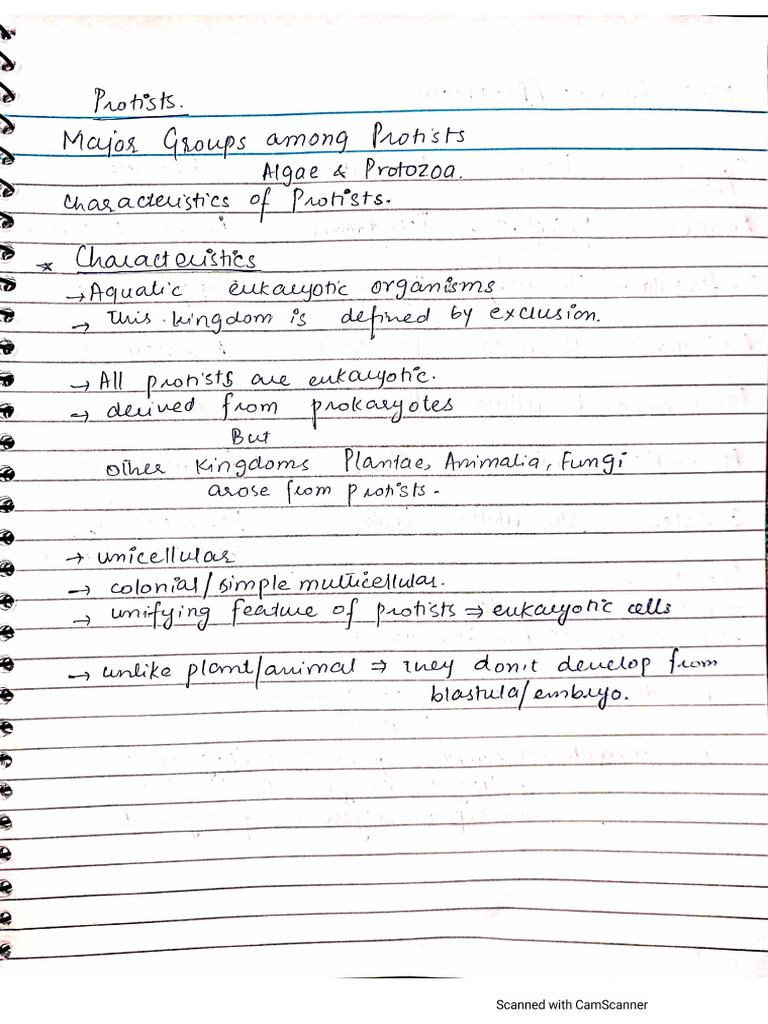 Protists.
Major Groups among Protists
Algae & Protozoa.
Characteristics of Protists.
* Characteristics
→ Aquatic eukaryotic organisms
→ This kingdom is defined by exclusion.
→ All protists are eukaryotic.
→ derived from prokaryotes
But
other kingdoms Plantae, Animalia, Fungi
arose from protists.
→ unicellular
→ colonial/simple multicellular.
→ unifying feature of protists ⇒ eukaryotic cells
→ unlike plant/animal ⇒ They don't develop from
blastula/embryo.
Scanned with CamScanner